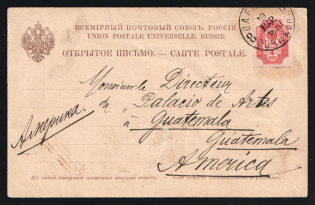 ВСЕМІРНЫЙ ПОЧТОВЫЙ СОЮЗЪ. РОССІЯ.
UNION POSTALE UNIVERSELLE. RUSSIE.
ОТКРЫТОЕ ПИСЬМО. — CARTE POSTALE.
Monsieur le Directeur
Palacio de Artes
à Guatemala
Guatemala
America
Америка.
На этой сторонѣ